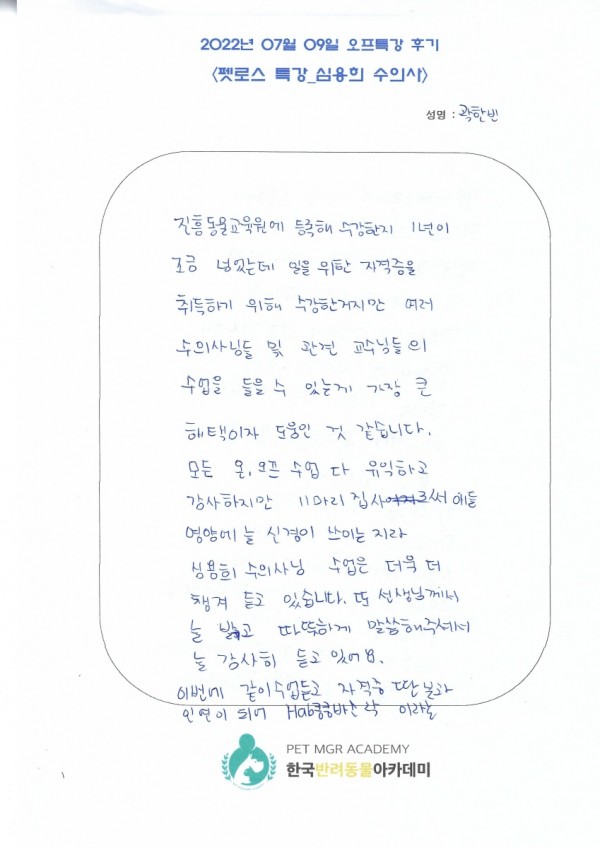 2022년 07월 09일 오프특강 후기
<펫로스 특강_심용희 수의사>
성명 : 곽한빈
진흥동물교육원에 등록해 수강한지 1년이
조금 넘었는데 일을 위한 자격증을
취득하기 위해 수강한거지만 여러
수의사님들 및 관련 교수님들의
수업을 들을 수 있는게 가장 큰
혜택이자 도움인 것 같습니다.
모든 온, 오프 수업 다 유익하고
감사하지만 11마리 집사로써 애들
영양에 늘 신경이 쓰이는 지라
심용희 수의사님 수업은 더욱 더
챙겨 듣고 있습니다. 또 선생님께서
늘 밝고 따뜻하게 말씀해주셔서
늘 감사히 듣고 있어요.
이번에 같이수업듣고 자격증 딴 분과
인연이 되어 이라는
PET MGR ACADEMY
한국반려동물아카데미